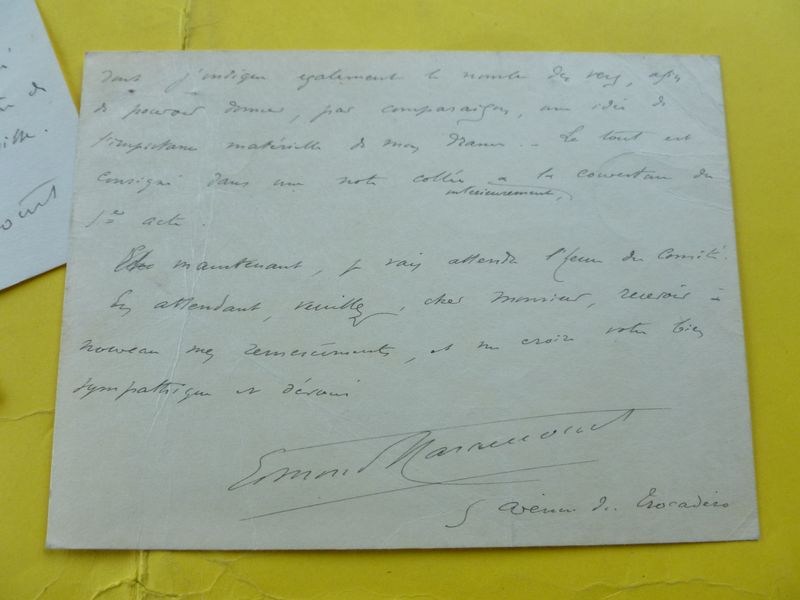 dont j'indique également le nombre des vers, afin
de pouvoir donner, par comparaison, une idée de
l'importance matérielle de mon drame. - Le tout est
consigné dans une note collée à la couverture du
intérieurement,
1er acte.
Et maintenant, je vais attendre l'heure du Comité.
En attendant, veuillez, cher monsieur, recevoir à
nouveau mes remerciements, et me croire votre bien
sympathique et dévoué
Edmond Haraucourt
5 avenue du Trocadéro
de
court